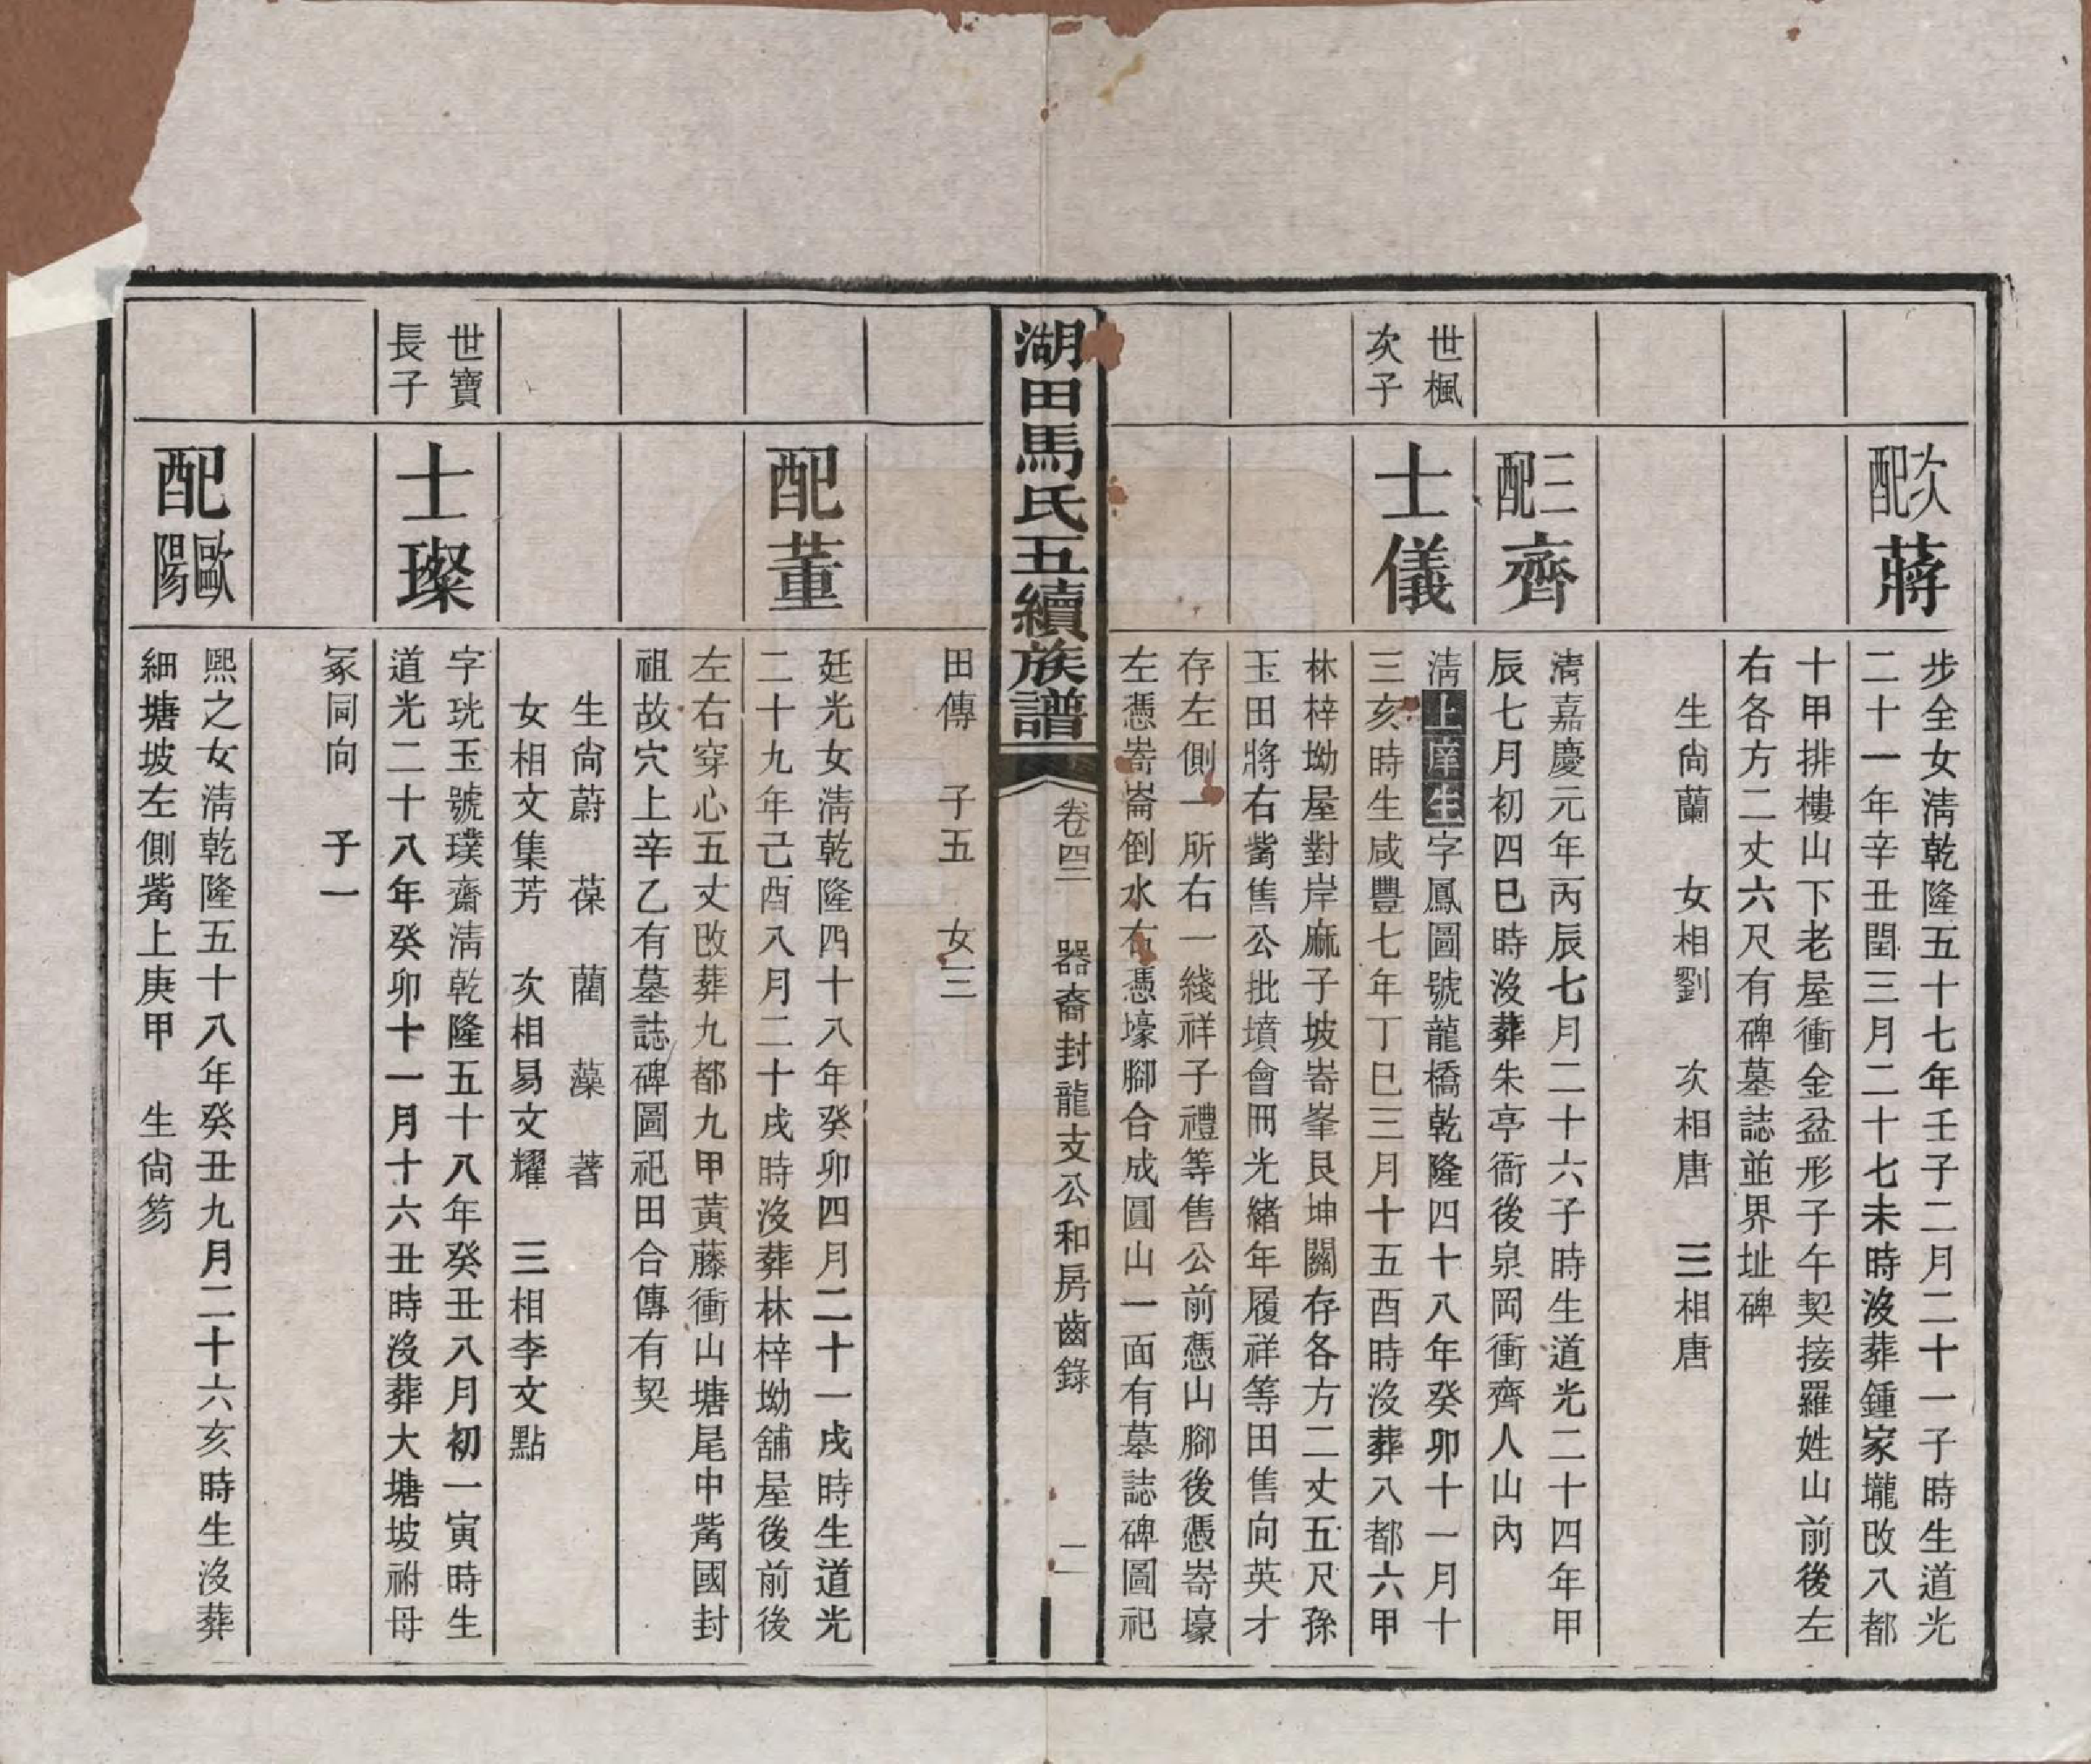 次配
蔣
步全女淸乾隆五十七年壬子二月二十一子時生道光
二十一年辛丑閏三月二十七未時沒葬鍾家壠改八都
十甲排樓山下老屋衝金盆形子午契接羅姓山前後左
右各方二丈六尺有碑墓誌並界址碑
生尙蘭　女相劉　次相唐　三相唐
三配
齊
淸嘉慶元年丙辰七月二十六子時生道光二十四年甲
辰七月初四巳時沒葬朱亭衙後泉岡衝齊人山內
世楓
次子
士儀
淸上庠生字鳳圖號龍橋乾隆四十八年癸卯十一月十
三亥時生咸豐七年丁巳三月十五酉時沒葬八都六甲
林梓坳屋對岸麻子坡嵜峯艮坤關存各方二丈五尺孫
玉田將右觜售公批墳會冊光緖年履祥等田售向英才
存左側一所右一綫祥子禮等售公前憑山腳後憑嵜壕
左憑嵜崙倒水右憑壕腳合成圓山一面有墓誌碑圖祀
湖田馬氏五續族譜
卷四三　器裔封龍支公和房齒錄　二
田傳　子五　女三
配董
廷光女淸乾隆四十八年癸卯四月二十一戌時生道光
二十九年己酉八月二十戌時沒葬林梓坳舖屋後前後
左右穿心五丈改葬九都九甲黃藤衝山塘尾中觜國封
祖故穴上辛乙有墓誌碑圖祀田合傳有契
生尙蔚　葆　藺　藻　蓍
女相文集芳　次相易文耀　三相李文點
世寶
長子
士璨
字珖玉號璞齋淸乾隆五十八年癸丑八月初一寅時生
道光二十八年癸卯十一月十六丑時沒葬大塘坡祔母
冢同向　子一
配歐陽
熙之女淸乾隆五十八年癸丑九月二十六亥時生沒葬
細塘坡左側觜上庚甲　生尙笏